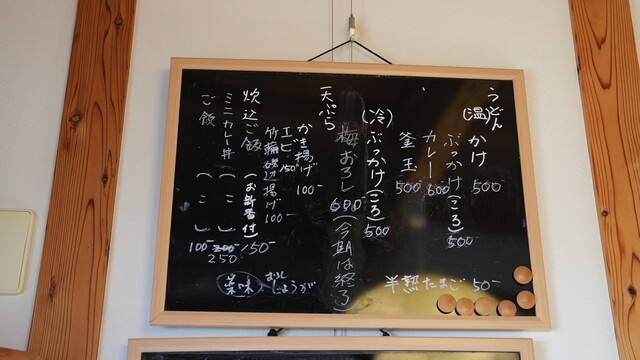 うどん
(温)かけ 500
ぶっかけ(ころ) 500
カレー 600
釜玉 500
(冷)ぶっかけ(ころ) 500
梅おろし 600(今期は終了)
半熟たまご 50-
天ぷら
かき揚げ 100-
エビ 150
竹輪磯辺揚げ 100-
炊込ご飯(お新香付) 150-
ミニカレー丼( 〃 ) 250
ご飯( 〃 ) 100-
薬味 おろし しょうが